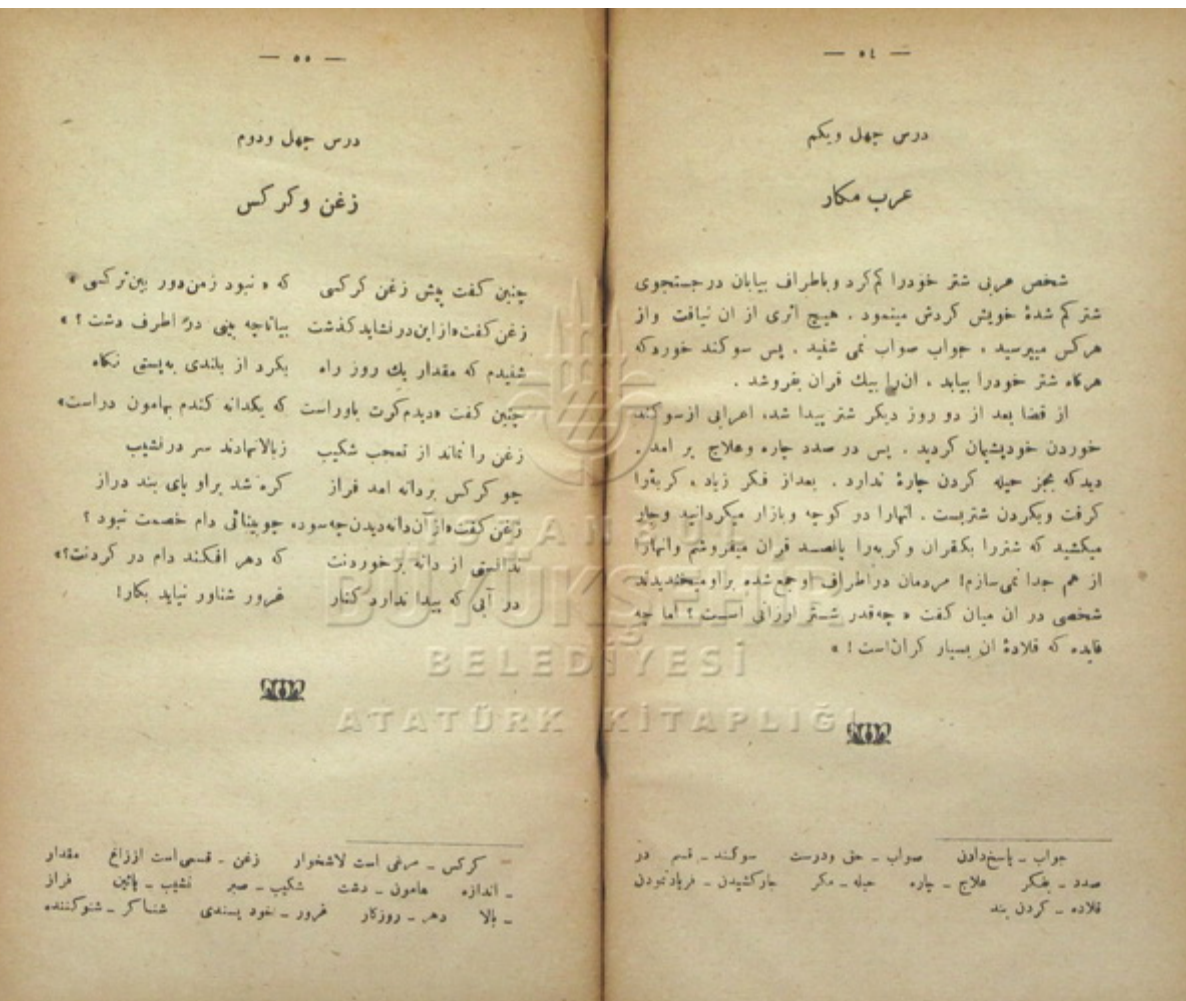 — ٥٤ —
درس چهل ویکم
عرب مکار
شخص عربی شتر خودرا کم کرد وباطراف بیابان درجستجوی
شتر کم شدهٔ خویش کردش مینمود . هیچ اثری از ان نیافت واز
هرکس میپرسید ، جواب صواب نمی شنید . پس سوکند خوردکه
هرکاه شتر خودرا بیابد ، ان‌را بیك قران بفروشد .
از قضا بعد از دو روز دیکر شتر پیدا شد، اعرابی ازسوکند
خوردن خودپشیمان کردید . پس در صدد چاره وعلاج بر امد .
دیدکه بجز حیله کردن چارهٔ ندارد . بعداز فکر زیاد ، کربهٔرا
کرفت وبکردن شتربست . انهارا در کوچه وبازار میکردانید وجار
میکشید که شتررا بیکقران وکربه‌را پانصـد قران میفروشم وانهارا
از هم جدا نمی‌سازم! مردمان دراطراف او جمع‌شده براومیخندیدند
شخصی در ان میان کفت « چه‌قدر شـتر ارزانی اسـت ؟ اما چه
فایده که قلادهٔ ان بسیار کران‌است ! »
جواب ـ پاسخ‌دادن صواب ـ حق ودرست سوکند ـ قسم در
صدد ـ بفکر علاج ـ چاره حیله ـ مکر جارکشیدن ـ فریادنمودن
قلاده ـ کردن بند
— ٥٥ —
درس چهل ودوم
زغن وکرکس
چنین کفت پیش زغن کرکسی که « نبود زمن‌دور بین‌ترکسی »
زغن کفت «ازاین‌درنشایدکذشت بیاتاچه بینی در اطرف دشت ؟ »
شنیدم که مقدار یك روز راه بکرد از بلندی به‌پستی نکاه
چنین کفت «دیدم‌کرت باوراست که یکدانه کندم بهامون دراست»
زغن را نماند از تعجب شکیب زبالانهادند سر درنشیب
چو کرکس بردانه امد فراز کره شد براو پای بند دراز
زغن کفت«ازآن‌دانه‌دیدن‌چه‌سود، چوبینائی دام خصمت نبود ؟
ندانستی از دانه برخوردنت که دهر افکند دام در کردنت؟»
در آبی که پیدا ندارد کنار غرور شناور نیاید بکار!
کرکس ـ مرغی است لاشخوار زغن ـ قسمی‌است اززاغ مقدار
ـ اندازه هامون ـ دشت شکیب ـ صبر نشیب ـ پائین فراز
ـ بالا دهر ـ روزکار غرور ـ خود پسندی شناکر ـ شنوکننده
İSTANBUL
BÜYÜKŞEHİR
BELEDİYESİ
ATATÜRK KİTAPLIĞI